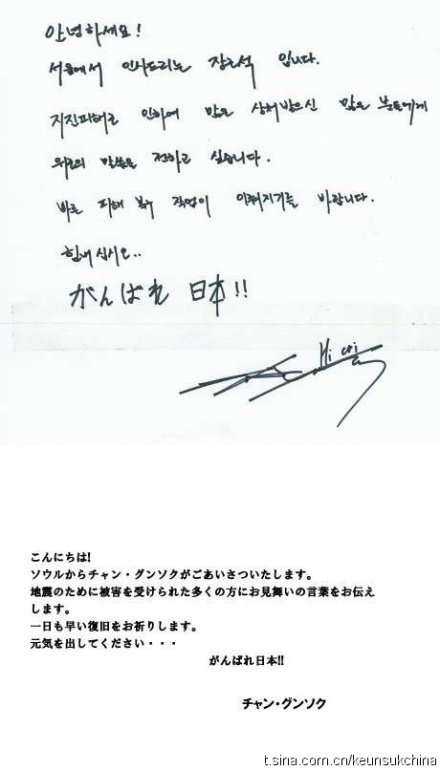 안녕하세요!
서울에서 인사드리는 장근석 입니다.
지진피해로 인하여 많은 상처받으신 많은 분들에게
위로의 말씀을 전하고 싶습니다.
바른 피해 복구 작업이 이뤄지기를 바랍니다.
힘내십시오..
がんばれ 日本!!
こんにちは!
ソウルからチャン・グンソクがごあいさついたします。
地震のために被害を受けられた多くの方にお見舞いの言葉をお伝え
します。
一日も早い復旧をお祈りします。
元気を出してください・・・
がんばれ日本!!
チャン・グンソク
t.sina.com.cn/keunsukchina